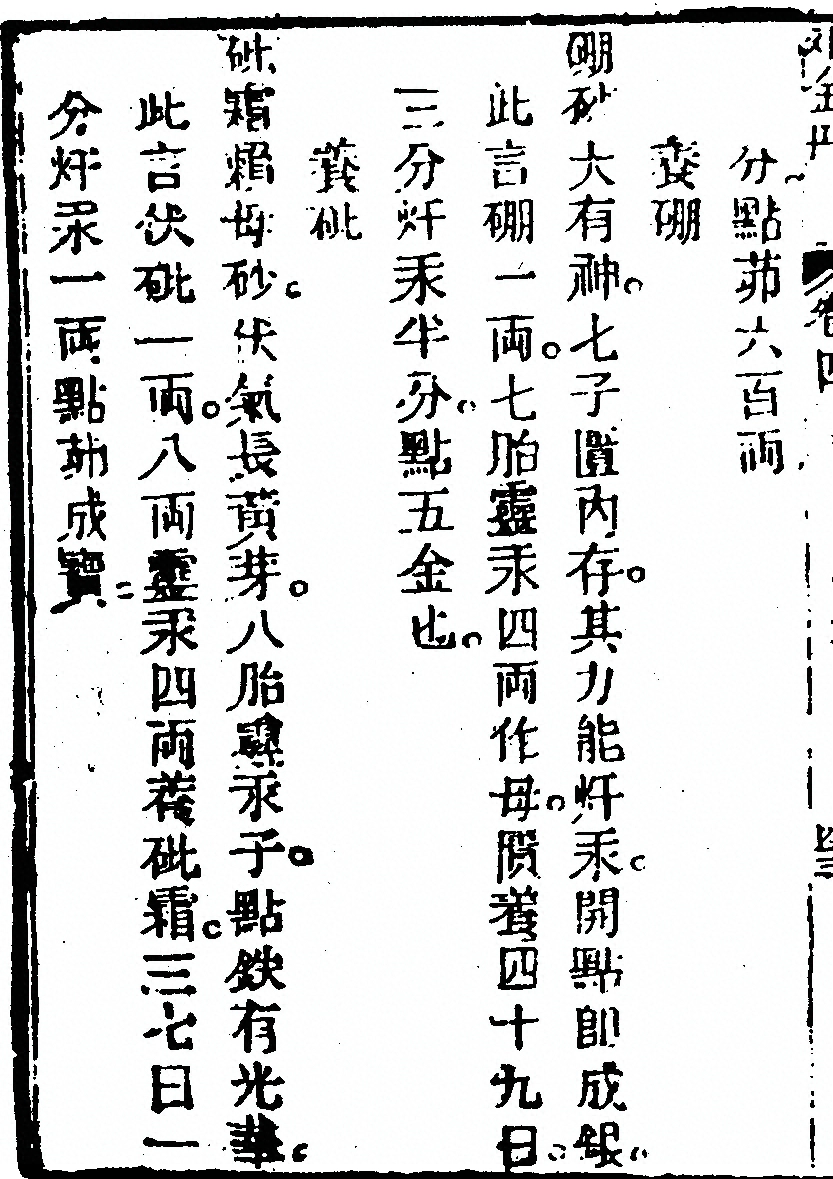 卷四
分點茆六百兩
養硼
硼砂大有神。七子匱內存。其力能𤆬汞。開點即成銀。
此言硼一兩。七胎靈汞四兩作母。匱養四十九日。
三分𤆬汞半分。點五金也。
養砒
砒霜賴母砂。伏氣長黃芽。八胎靈汞子。點鉄有光華。
此言伏砒一兩。八兩靈汞四兩養砒霜。三七日一
分𤆬汞一兩點茆成寶